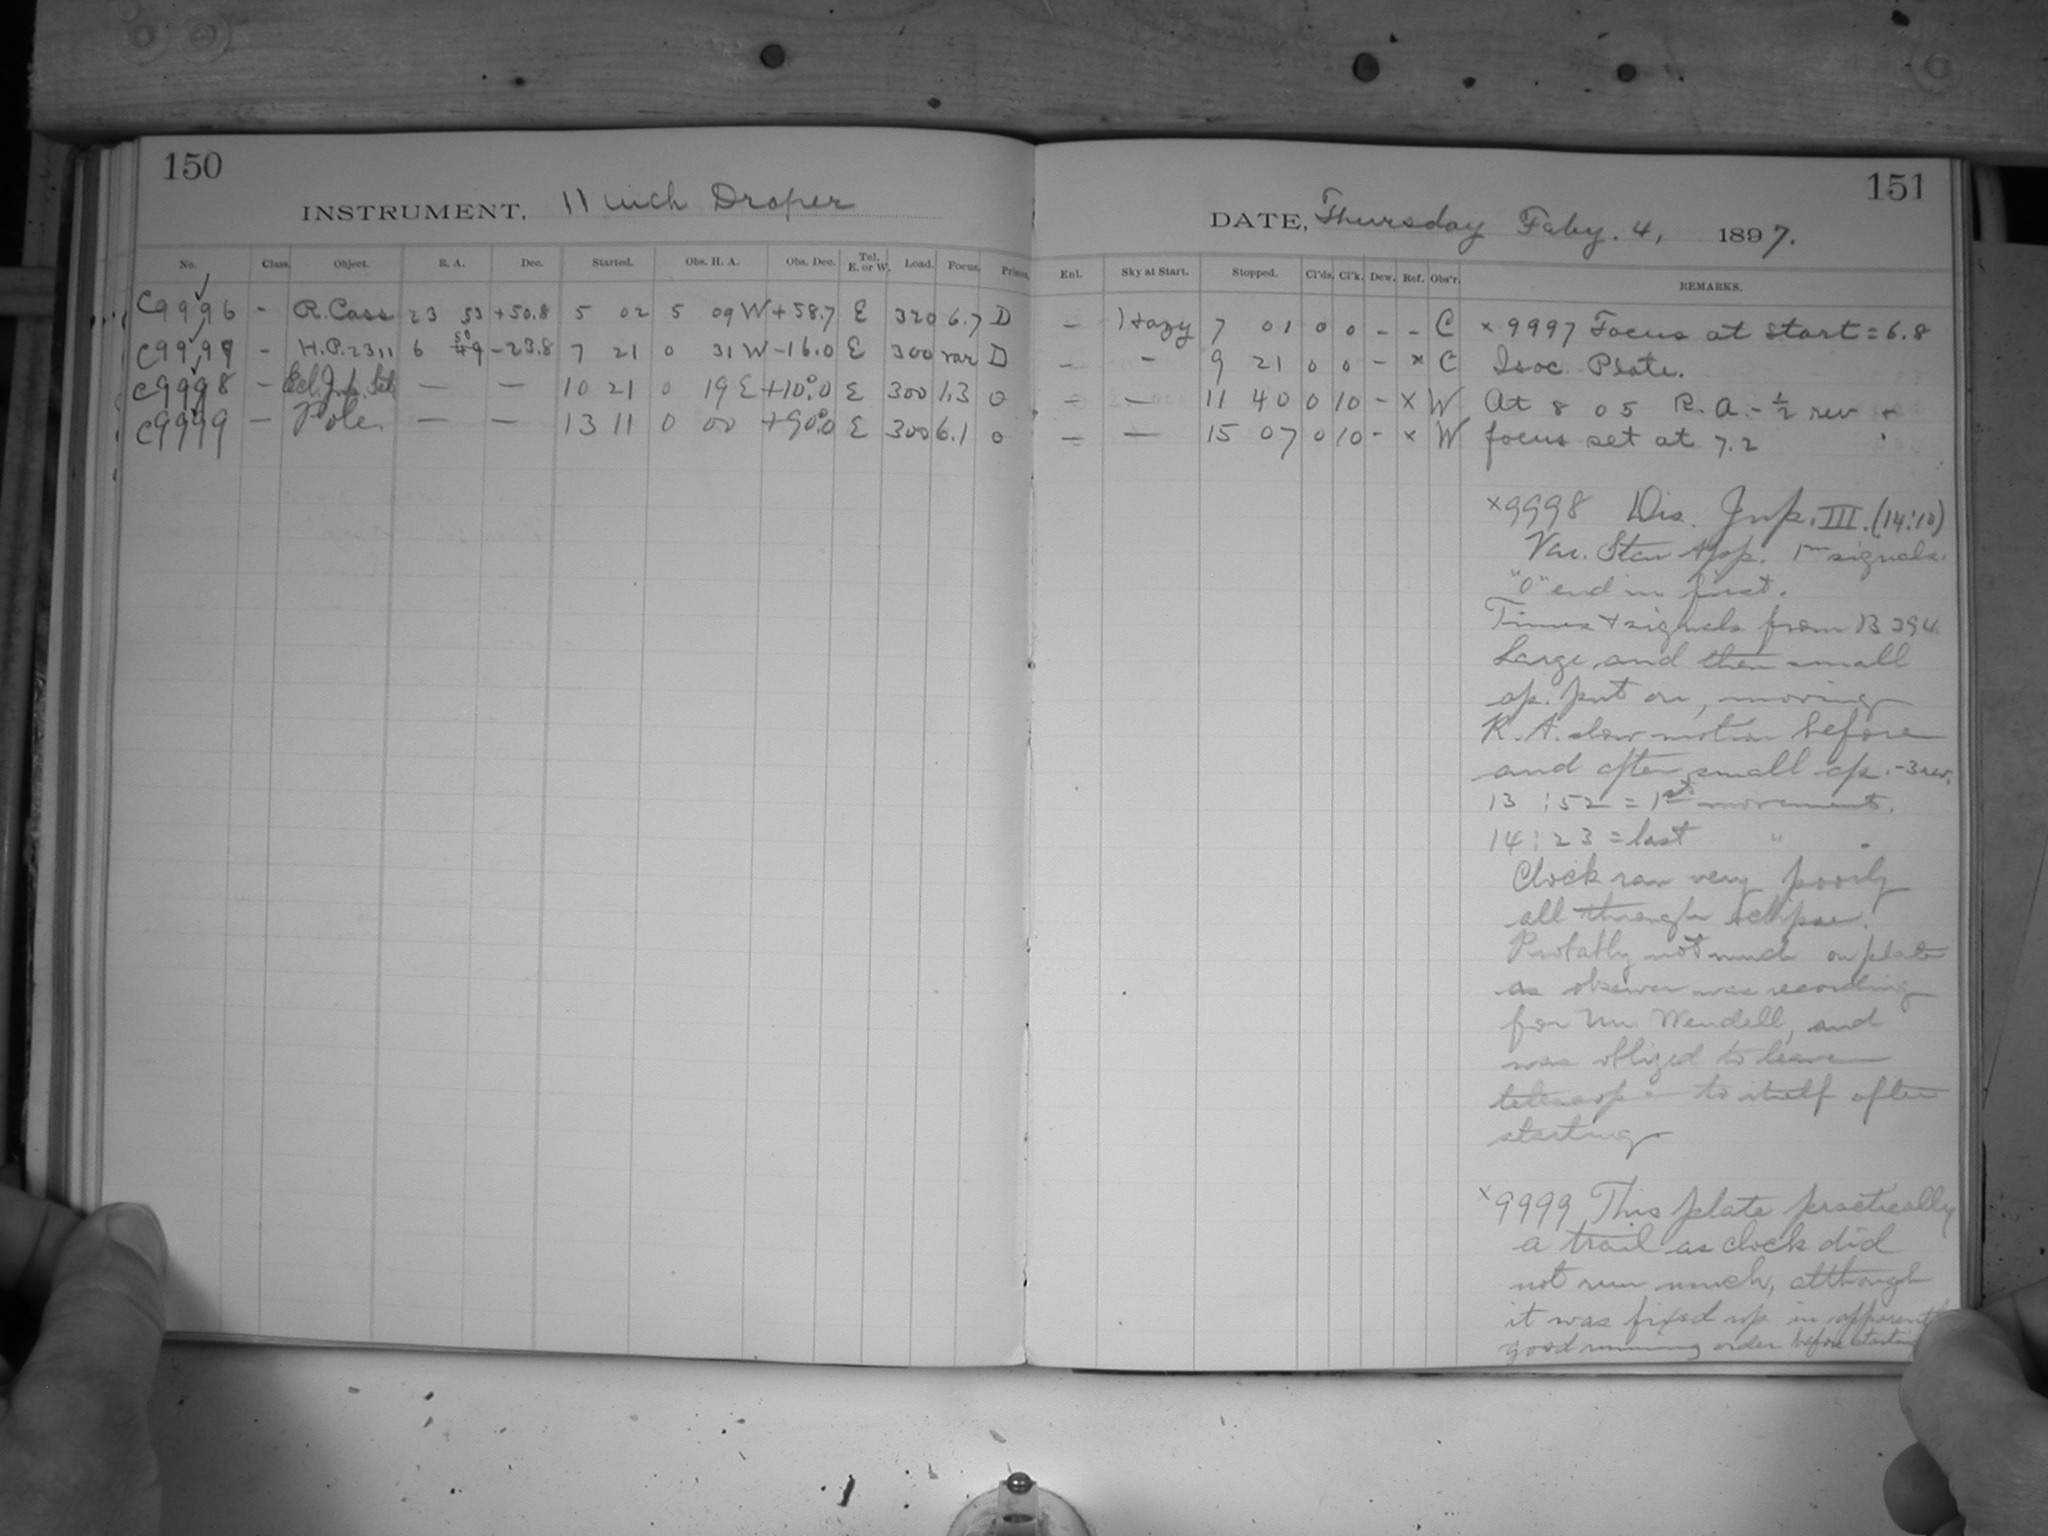 150
INSTRUMENT, 11 inch Draper
No. Class. Object. R. A. Dec. Started. Obs. H. A. Obs. Dec. Tel. E. or W. Load. Focus. Prism.
C9996 - R. Cass 23 53 +50.8 5 02 5 09 W +58.7 E 320 6.7 D
C9997 - H.P. 2311 6 49 50 -23.8 7 21 0 31 W -16.0 E 300 var D
C9998 - Ecl. Jup. Sat. — — 10 21 0 19 E +10°.0 E 300 1.3 0
C9999 - Pole. — — 13 11 0 00 +90°.0 E 300 6.1 0
151
DATE, Thursday Feby. 4, 1897.
Enl. Sky at Start. Stopped. Cl'ds. Cl'k. Dew. Ref. Obs'r. REMARKS.
- Hazy 7 01 0 0 - - C × 9997 Focus at start = 6.8
- - 9 21 0 0 - × C Isoc. Plate.
- — 11 40 0 10 - × W At 8 05 R. A. - ½ rev +
- — 15 07 0 10 - × W focus set at 7.2
×9998 Dis. Jup. III. (14:10)
Var. Star App. 1m signals.
"0" end in first.
Times + signals from B 394
Large and then small
ap. put on, moving
R. A. slow motion before
and after small ap. -3 rev.
13 : 52 = 1st movement.
14 : 23 = last " .
Clock ran very poorly
all through eclipse.
Probably not much on plate
as observer was recording
for Mr. Wendell, and
was obliged to leave
telescope to itself after
starting
×9999 This plate practically
a trail as clock did
not run much, although
it was fixed up in apparently
good running order before starting